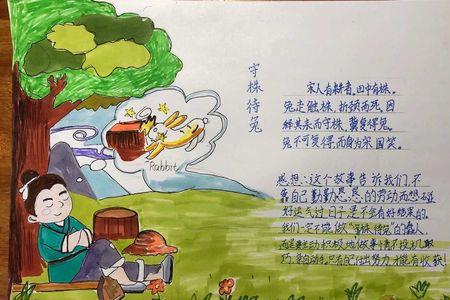 守株待兔
宋人有耕者。田中有株。
兔走触株,折颈而死。因
释其耒而守株,冀复得兔。
兔不可复得,而身为宋国笑。
Rabbit
感想:这个故事告诉我们,不
靠自己勤勤恳恳的劳动而想碰
好运气过日子,是不会有好结果的。
我们一定不能做"守株待兔"的蠢人,
而是主动积极地做事情不投机取
巧 只有自己付出努力才能有收获!